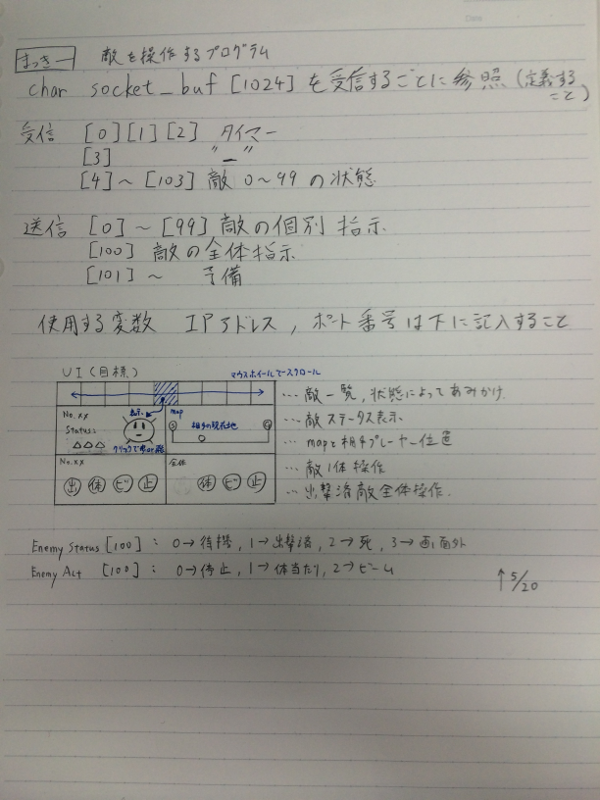 まっきー 敵を操作するプログラム
char socket_buf [1024] を受信するごとに参照 (定義すること)
受信 [0][1][2] タイマー
[3] " ー "
[4]～[103] 敵 0～99 の状態
送信 [0]～[99] 敵の個別指示
[100] 敵の全体指示
[101]～ 予備
使用する変数 IPアドレス, ポート番号は下に記入すること
UI(目標) マウスホイールでスクロール
… 敵一覧, 状態によってあみかけ
No.xx map
Status: 相手の現在地
△△△ クリックで
… 敵ステータス表示
… mapと相手プレーヤー位置
No.xx 全体
出 体 ビ 止 体 ビ 止
… 敵1体操作
… 出撃済敵全体操作.
Enemy Status [100] : 0→待機, 1→出撃済, 2→死, 3→画面外
Enemy Act [100] : 0→停止, 1→体当たり, 2→ビーム
↑5/20